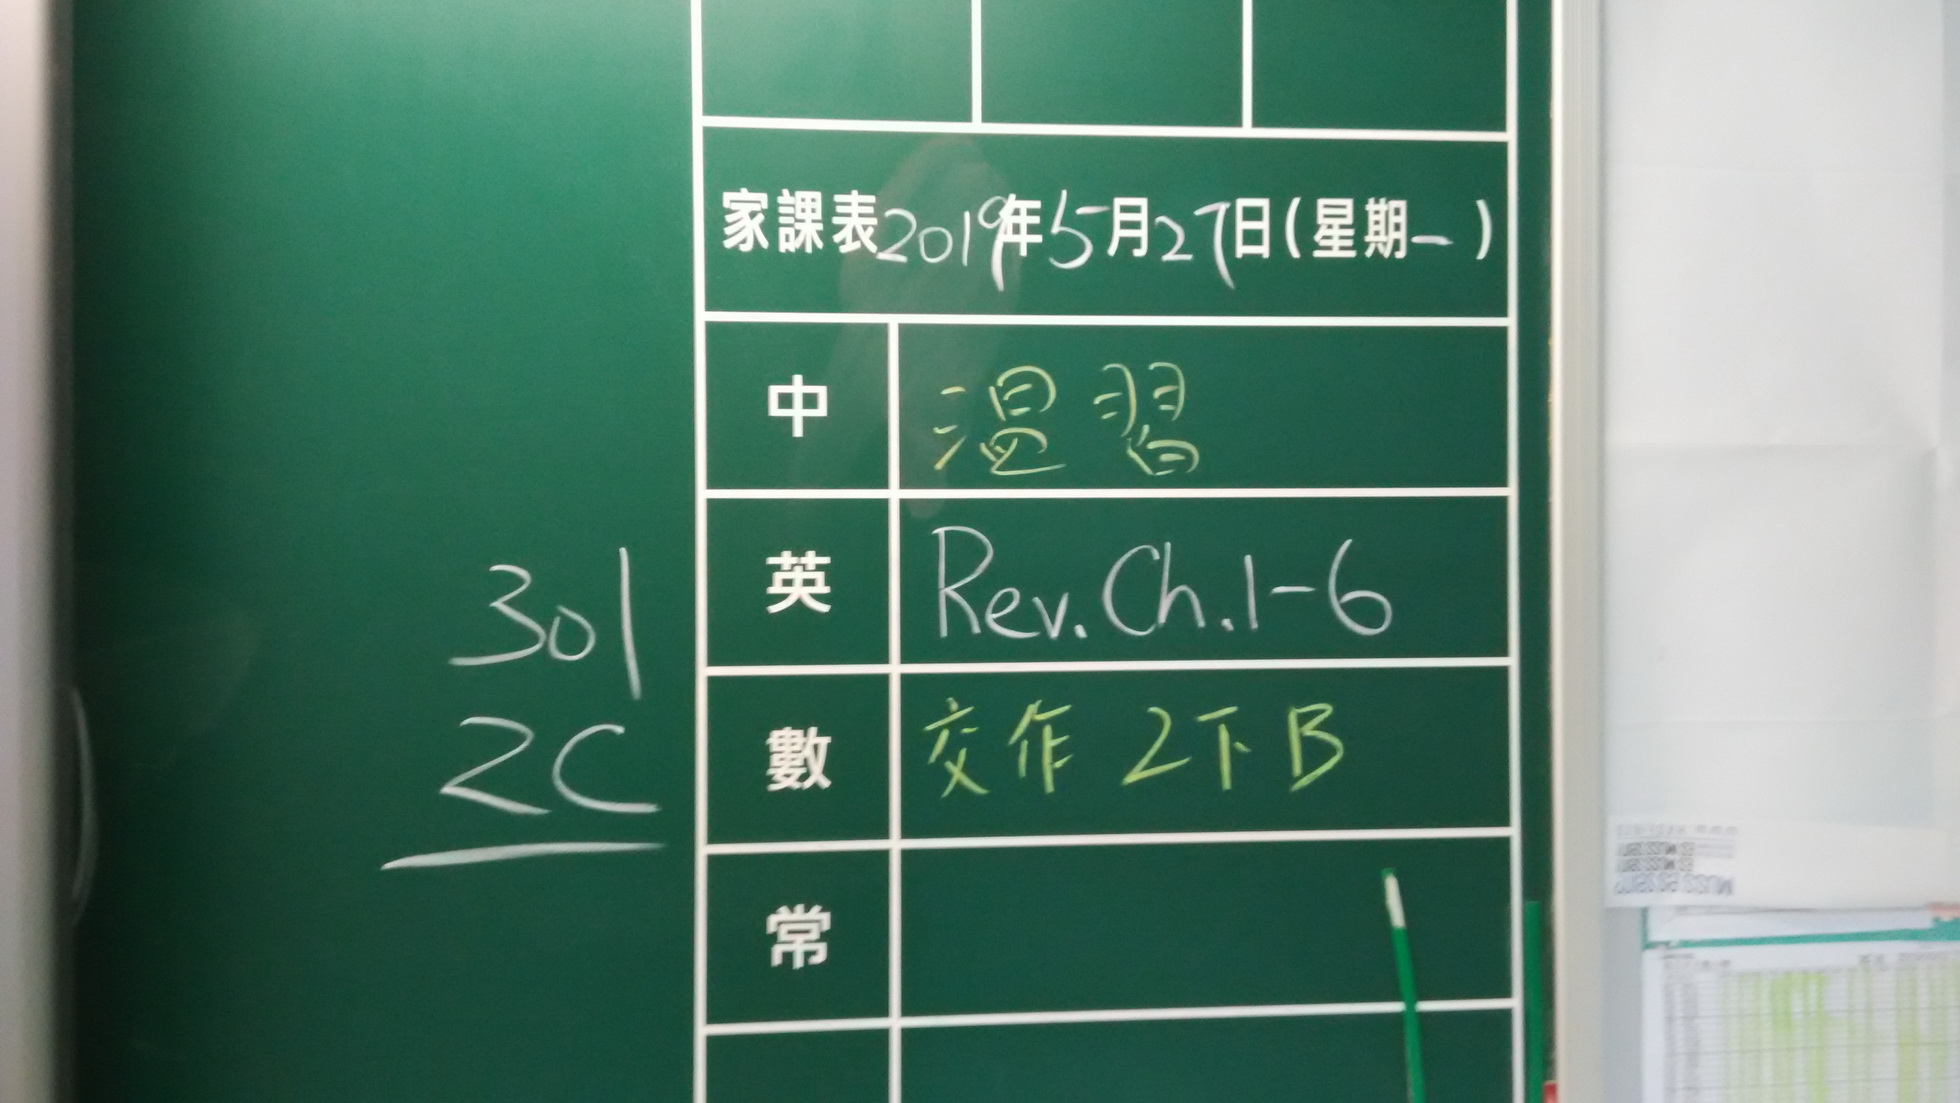 家課表2019年5月27日(星期一)
中 温習
英 Rev. Ch. 1-6
數 交作 2下B
常
301
2C